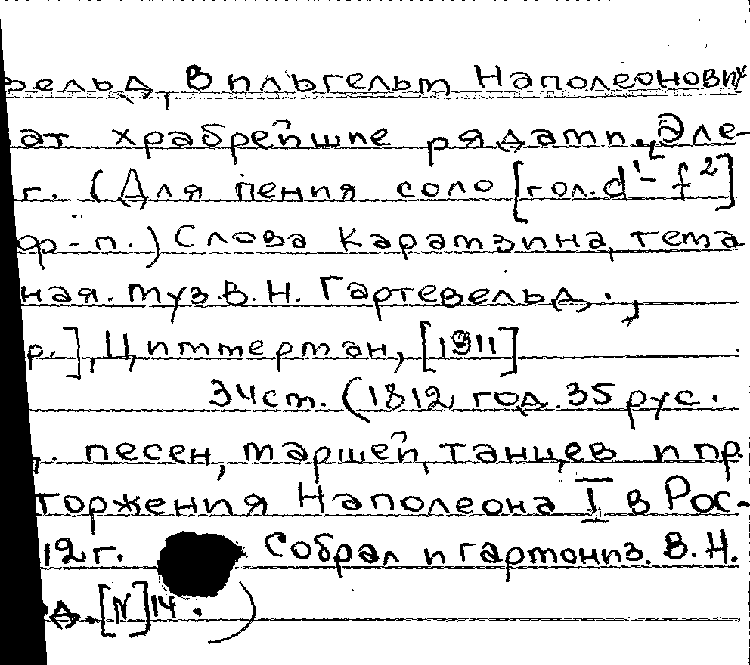 вельд, Вильгельм Наполеонович
ат храбрейшие рядами., Эле-
г. (Для пения соло [гол. d¹ – f²]
ф-п.) Слова Карамзина, тема
ная. муз. В. Н. Гартевельд,.;
р.], Циммерман, [1911]
34 см. (1812 год. 35 рус.
,. песен, маршей, танцев и пр.
торжения Наполеона I в Рос-
12 г. Собрал и гармониз. В. Н.
д. [N] 14. )